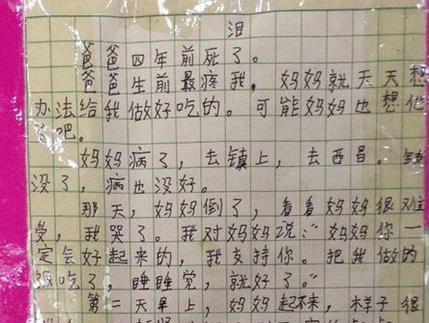 泪
爸爸四年前死了。
爸爸生前最疼我,妈妈就天天想
办法给我做好吃的。可能妈妈也想他
了吧。
妈妈病了,去镇上,去西昌。钱
没了,病也没好。
那天,妈妈倒了,看看妈妈很难
受,我哭了。我对妈妈说:“妈妈你一
定会好起来的,我支持你。把我做的
饭吃了,睡睡觉,就好了。”
第二天早上,妈妈起不来,样子很